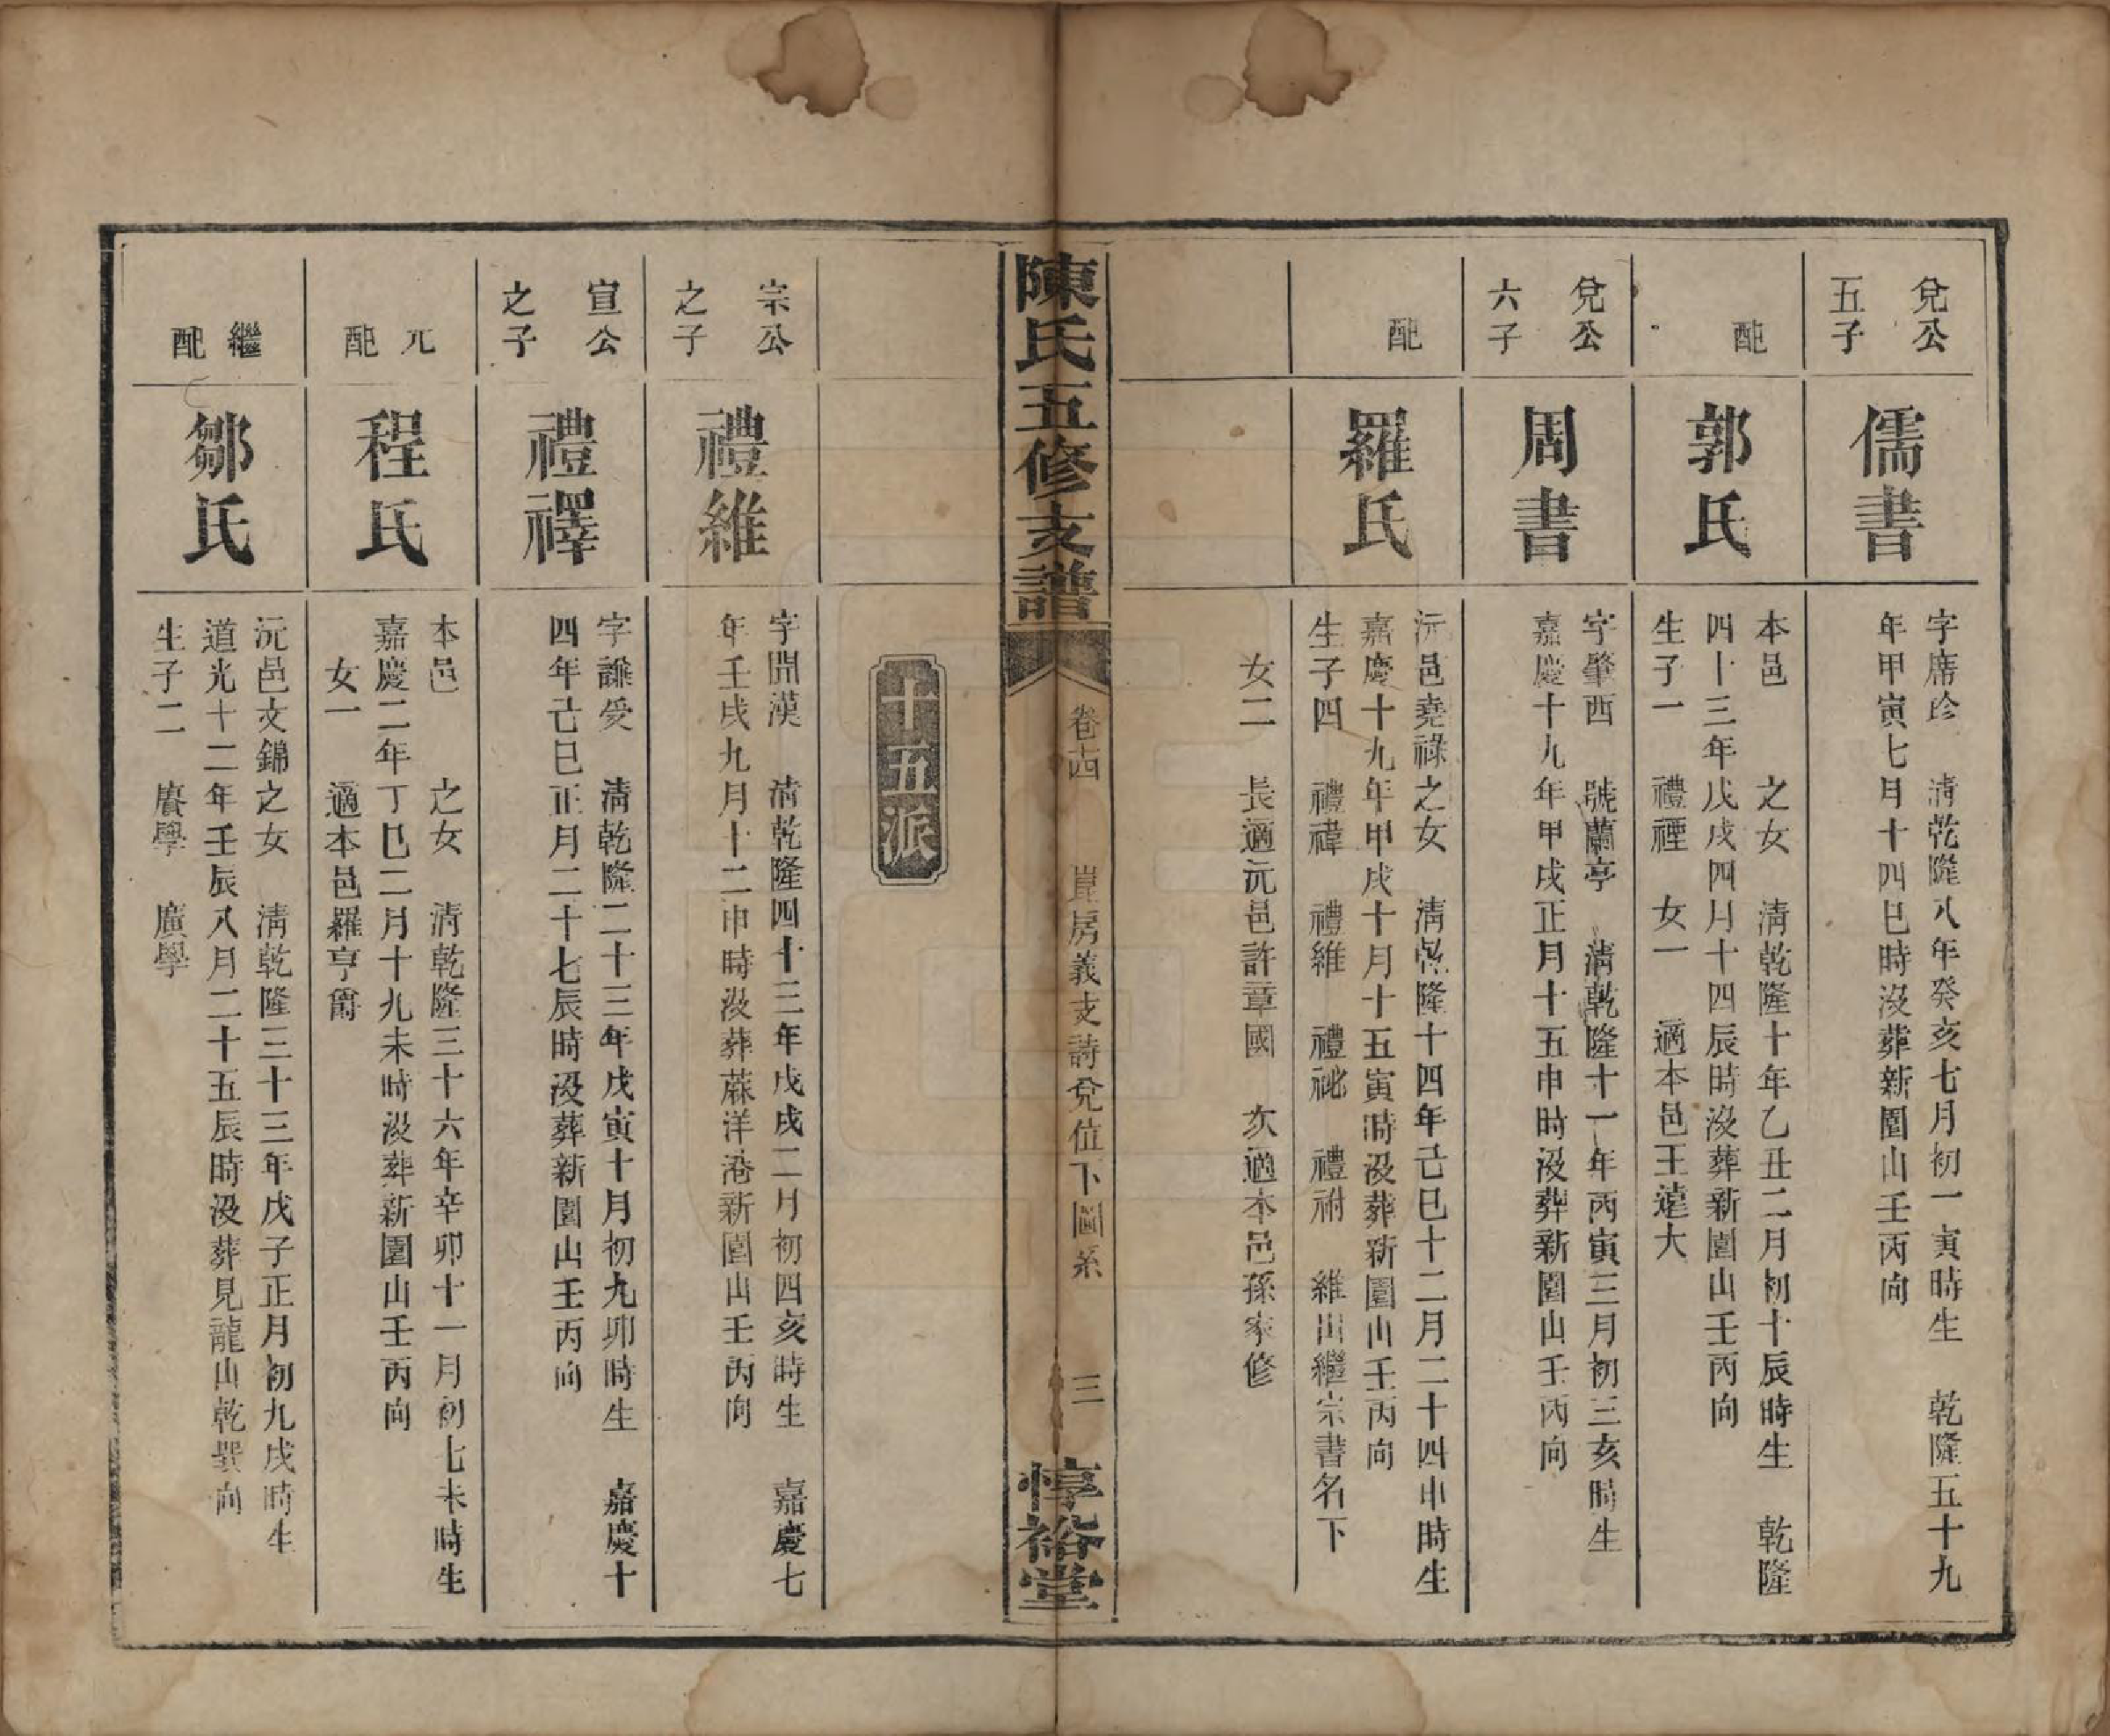 兌公
五子
儒書
字席珍　清乾隆八年癸亥七月初一寅時生　乾隆五十九
年甲寅七月十四巳時沒葬新園山壬丙向
配
郭氏
本邑　　之女　清乾隆十年乙丑二月初十辰時生　乾隆
四十三年戊戌四月十四辰時沒葬新園山壬丙向
生子一　禮禋　女一　適本邑王遠大
兌公
六子
周書
字肇西　號蘭亭　清乾隆十一年丙寅三月初三亥時生
嘉慶十九年甲戌正月十五申時沒葬新園山壬丙向
配
羅氏
沅邑堯祿之女　清乾隆十四年己巳十二月二十四申時生
嘉慶十九年甲戌十月十五寅時沒葬新園山壬丙向
生子四　禮禕　禮維　禮祕　禮祔　維出繼宗書名下
女二　長適沅邑許章國　次適本邑孫家修
陳氏五修支譜
卷十四　房義支詩兌位下圖系　三
惇裕堂
十五派
宗公
之子
禮維
字開漢　清乾隆四十三年戊戌二月初四亥時生　嘉慶七
年壬戌九月十二申時沒葬蔴洋港新園山壬丙向
宣公
之子
禮禪
字謙受　清乾隆二十三年戊寅十月初九卯時生　嘉慶十
四年己巳正月二十七辰時沒葬新園山壬丙向
元
配
程氏
本邑　　之女　清乾隆三十六年辛卯十一月初七未時生
嘉慶二年丁巳二月十九未時沒葬新園山壬丙向
女一　適本邑羅亨爵
繼
配
鄒氏
沅邑文錦之女　清乾隆三十三年戊子正月初九戌時生
道光十二年壬辰八月二十五辰時沒葬見龍山乾巽向
生子二　賡學　廣學